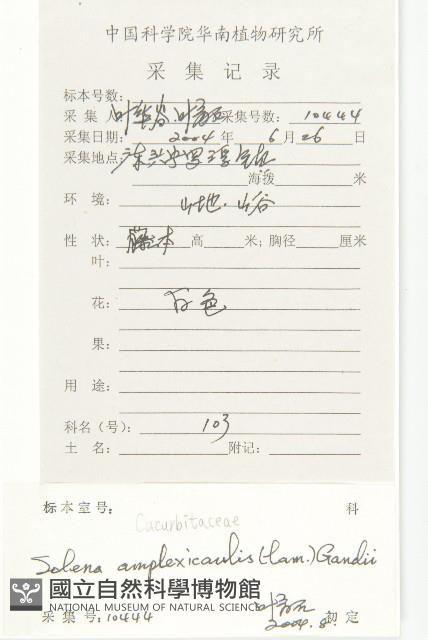 中国科学院华南植物研究所
采集记录
标本号数:
采集人 叶华谷 叶 采集号数: 10444
采集日期: 2004年6月26日
采集地点
海拨 米
环境: 山地.山谷
性状: 藤本 高 米; 胸径 厘米
叶:
花: 白色
果:
用途:
科名(号): 103
土名: 附记:
标本室号: 科
Cucurbitaceae
Solena amplexicaulis (Lam.) Gandii
國立自然科學博物館
NATIONAL MUSEUM OF NATURAL SCIENCE
采集号: 10444 2004.8 初定